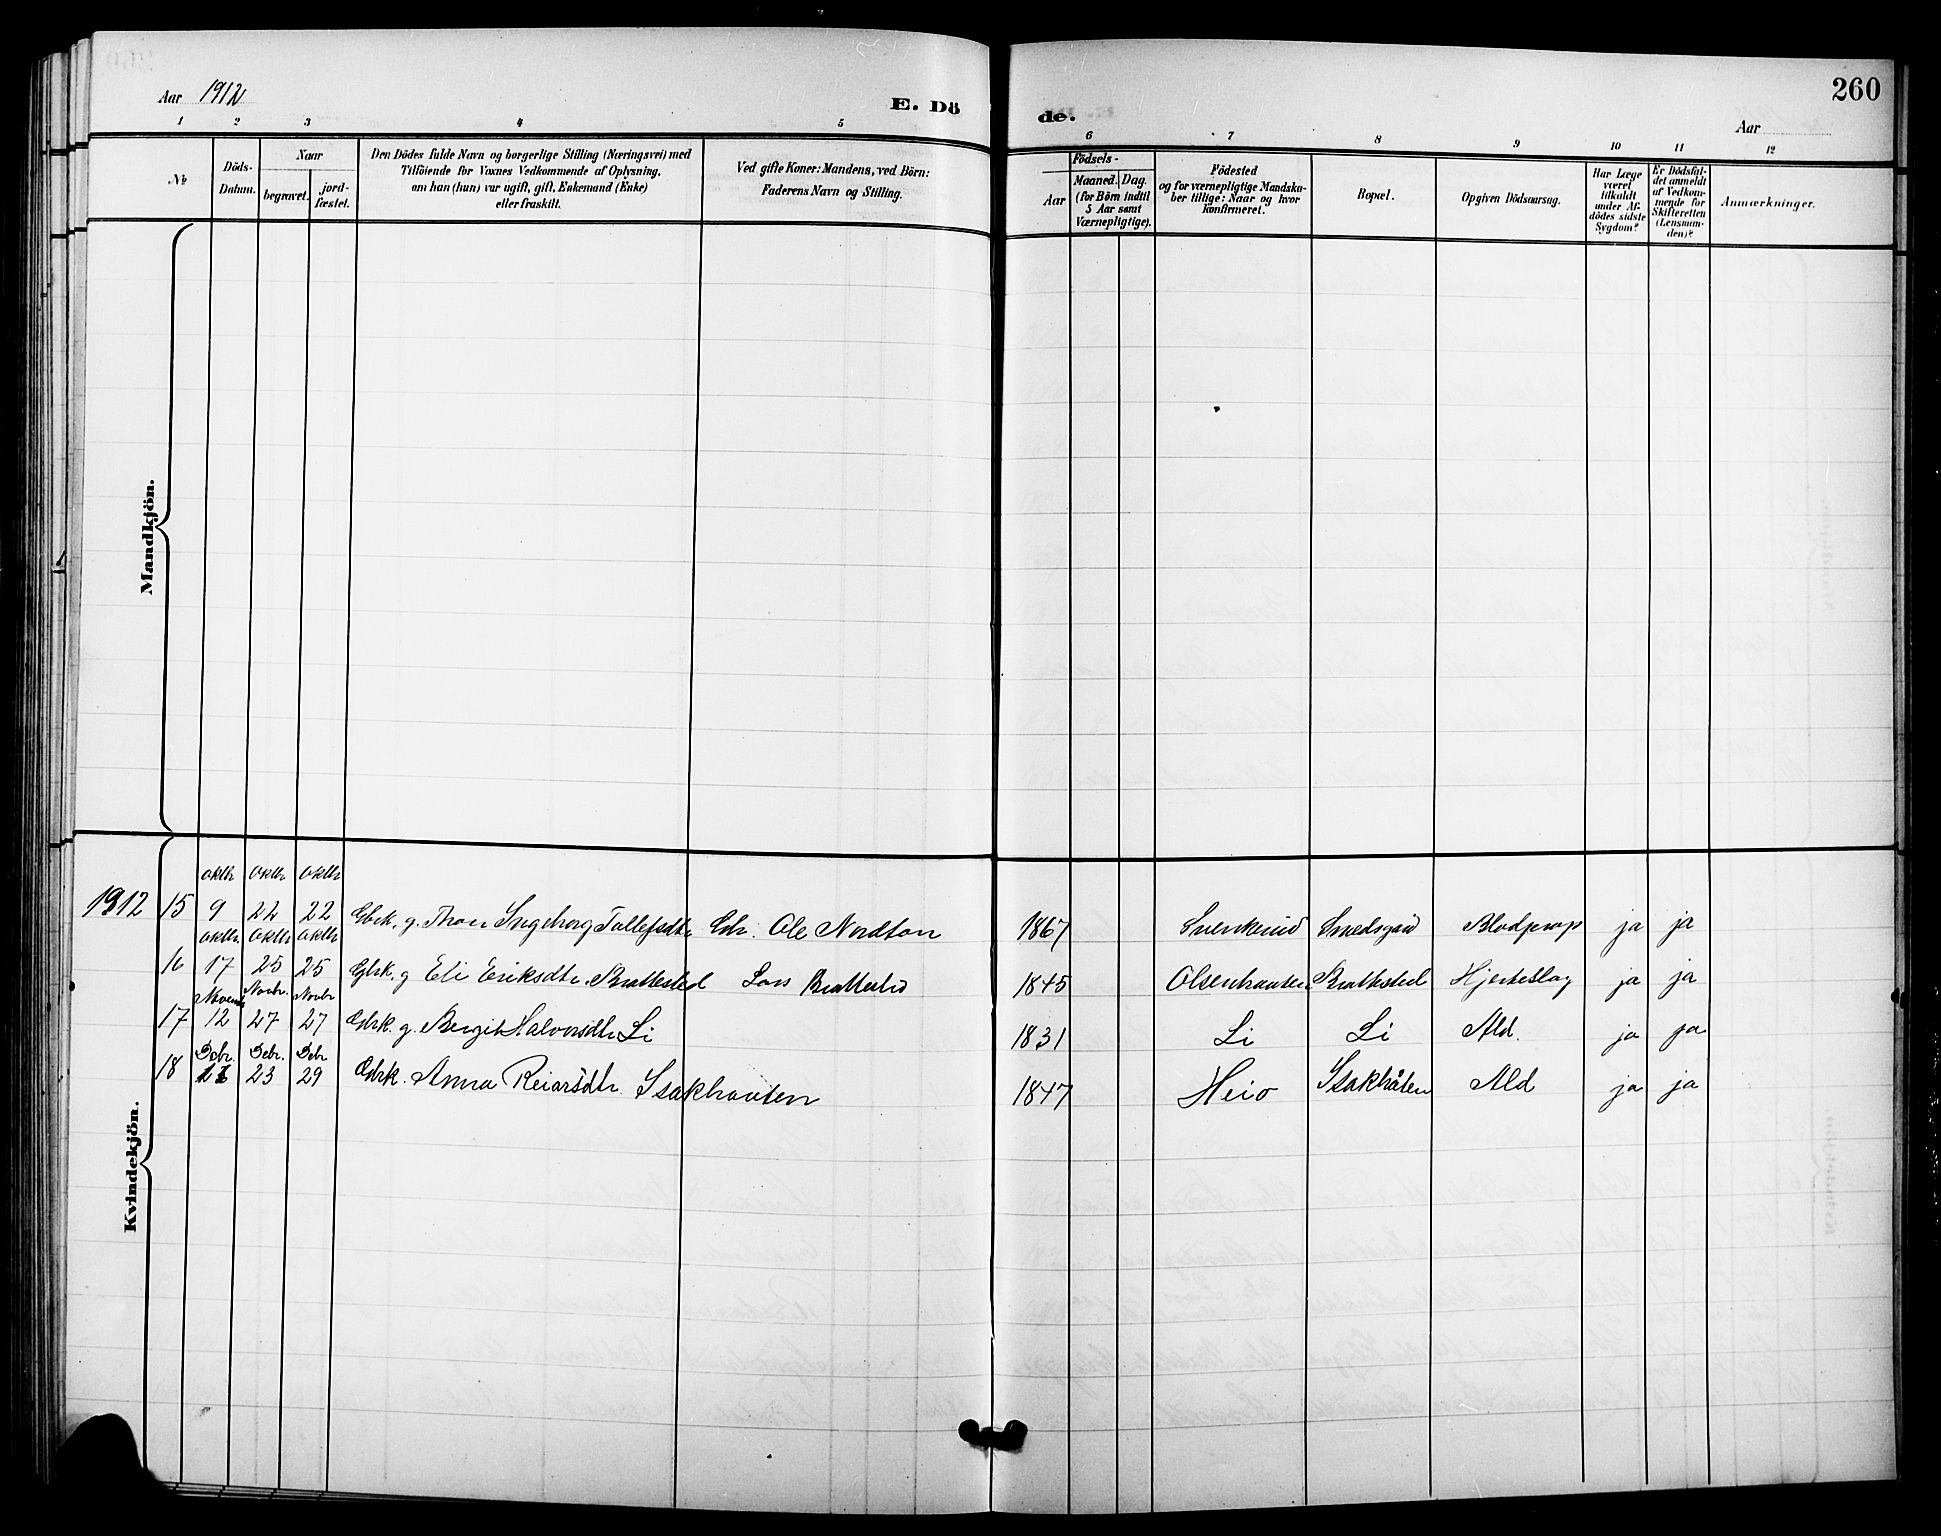 Aar 1912
E. Dö
de.
260
Aar
1 2 3 4 5 6 7 8 9 10 11 12
№
Döds-
Datum.
Naar
begravet.
jord-
fæstet.
Den Dödes fulde Navn og borgerlige Stilling (Næringsvei) med
Tilföiende for Voxnes Vedkommende af Oplysning,
om han (hun) var ugift, gift, Enkemand (Enke)
eller fraskilt.
Ved gifte Koner: Mandens, ved Börn:
Faderens Navn og Stilling.
Födsels-
Aar
Maaned. Dag.
(for Börn indtil
5 Aar samt
Værnepligtige).
Födested
og for værnepligtige Mandska-
ber tillige: Naar og hvor
konfirmeret.
Bopæl.
Opgiven Dödsaarsag.
Har Læge
været
tilkaldt
under Af-
dödes sidste
Sygdom?
Er Dödsfal-
det anmeldt
af Vedkom-
mende for
Skifteretten
(Lensman-
den)?
Anmærkninger.
Mandkjön.
Kvindekjön.
oktbr oktbr oktbr
1912 15 9 22 22 Gbrk. g. Thone Ingeborg Tollefsdtr Gbr. Ole Nordton 1867 Svenkerud Smedsgard Blodprop ja ja
oktbr. oktbr oktbr
16 17 25 25 Gbrk. g Eli Eriksdtr. Brattested Lars Brattested 1845 Olsenhauten Brattested Hjerteslag ja ja
Novbr. Novbr
17 12 27 27 Gbrk. g. Bergit Halvorsdtr Li 1831 Li Li Ald. ja ja
Debr. Debr. Debr
18 23 29 Gbrk. Anna Reiarsdtr Isakhauten 1847 Heio Isakhåten Ald ja ja